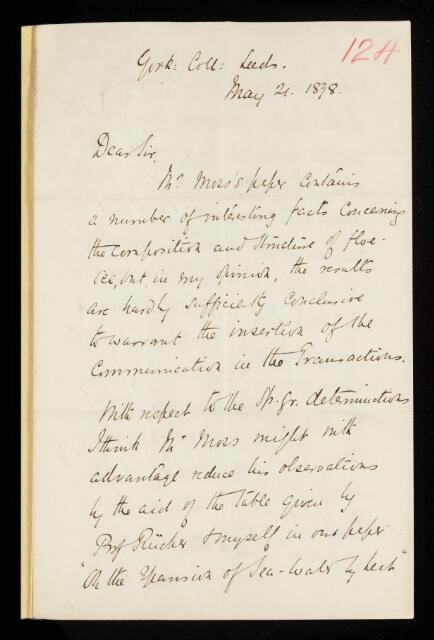 124
York: Coll: Leeds.
May 21. 1878.
Dear Sir,
Mr. Moss's paper contains
a number of interesting facts concerning
the composition and structure of floe-
ice, but, in my opinion, the results
are hardly sufficiently conclusive
to warrant the insertion of the
Communication in the Transactions.
With respect to the Sp. gr. determinations
I think Mr Moss might with
advantage reduce his observations
by the aid of the table given by
Prof Rücker & myself in our paper
"On the Expansion of Sea-Water by heat"